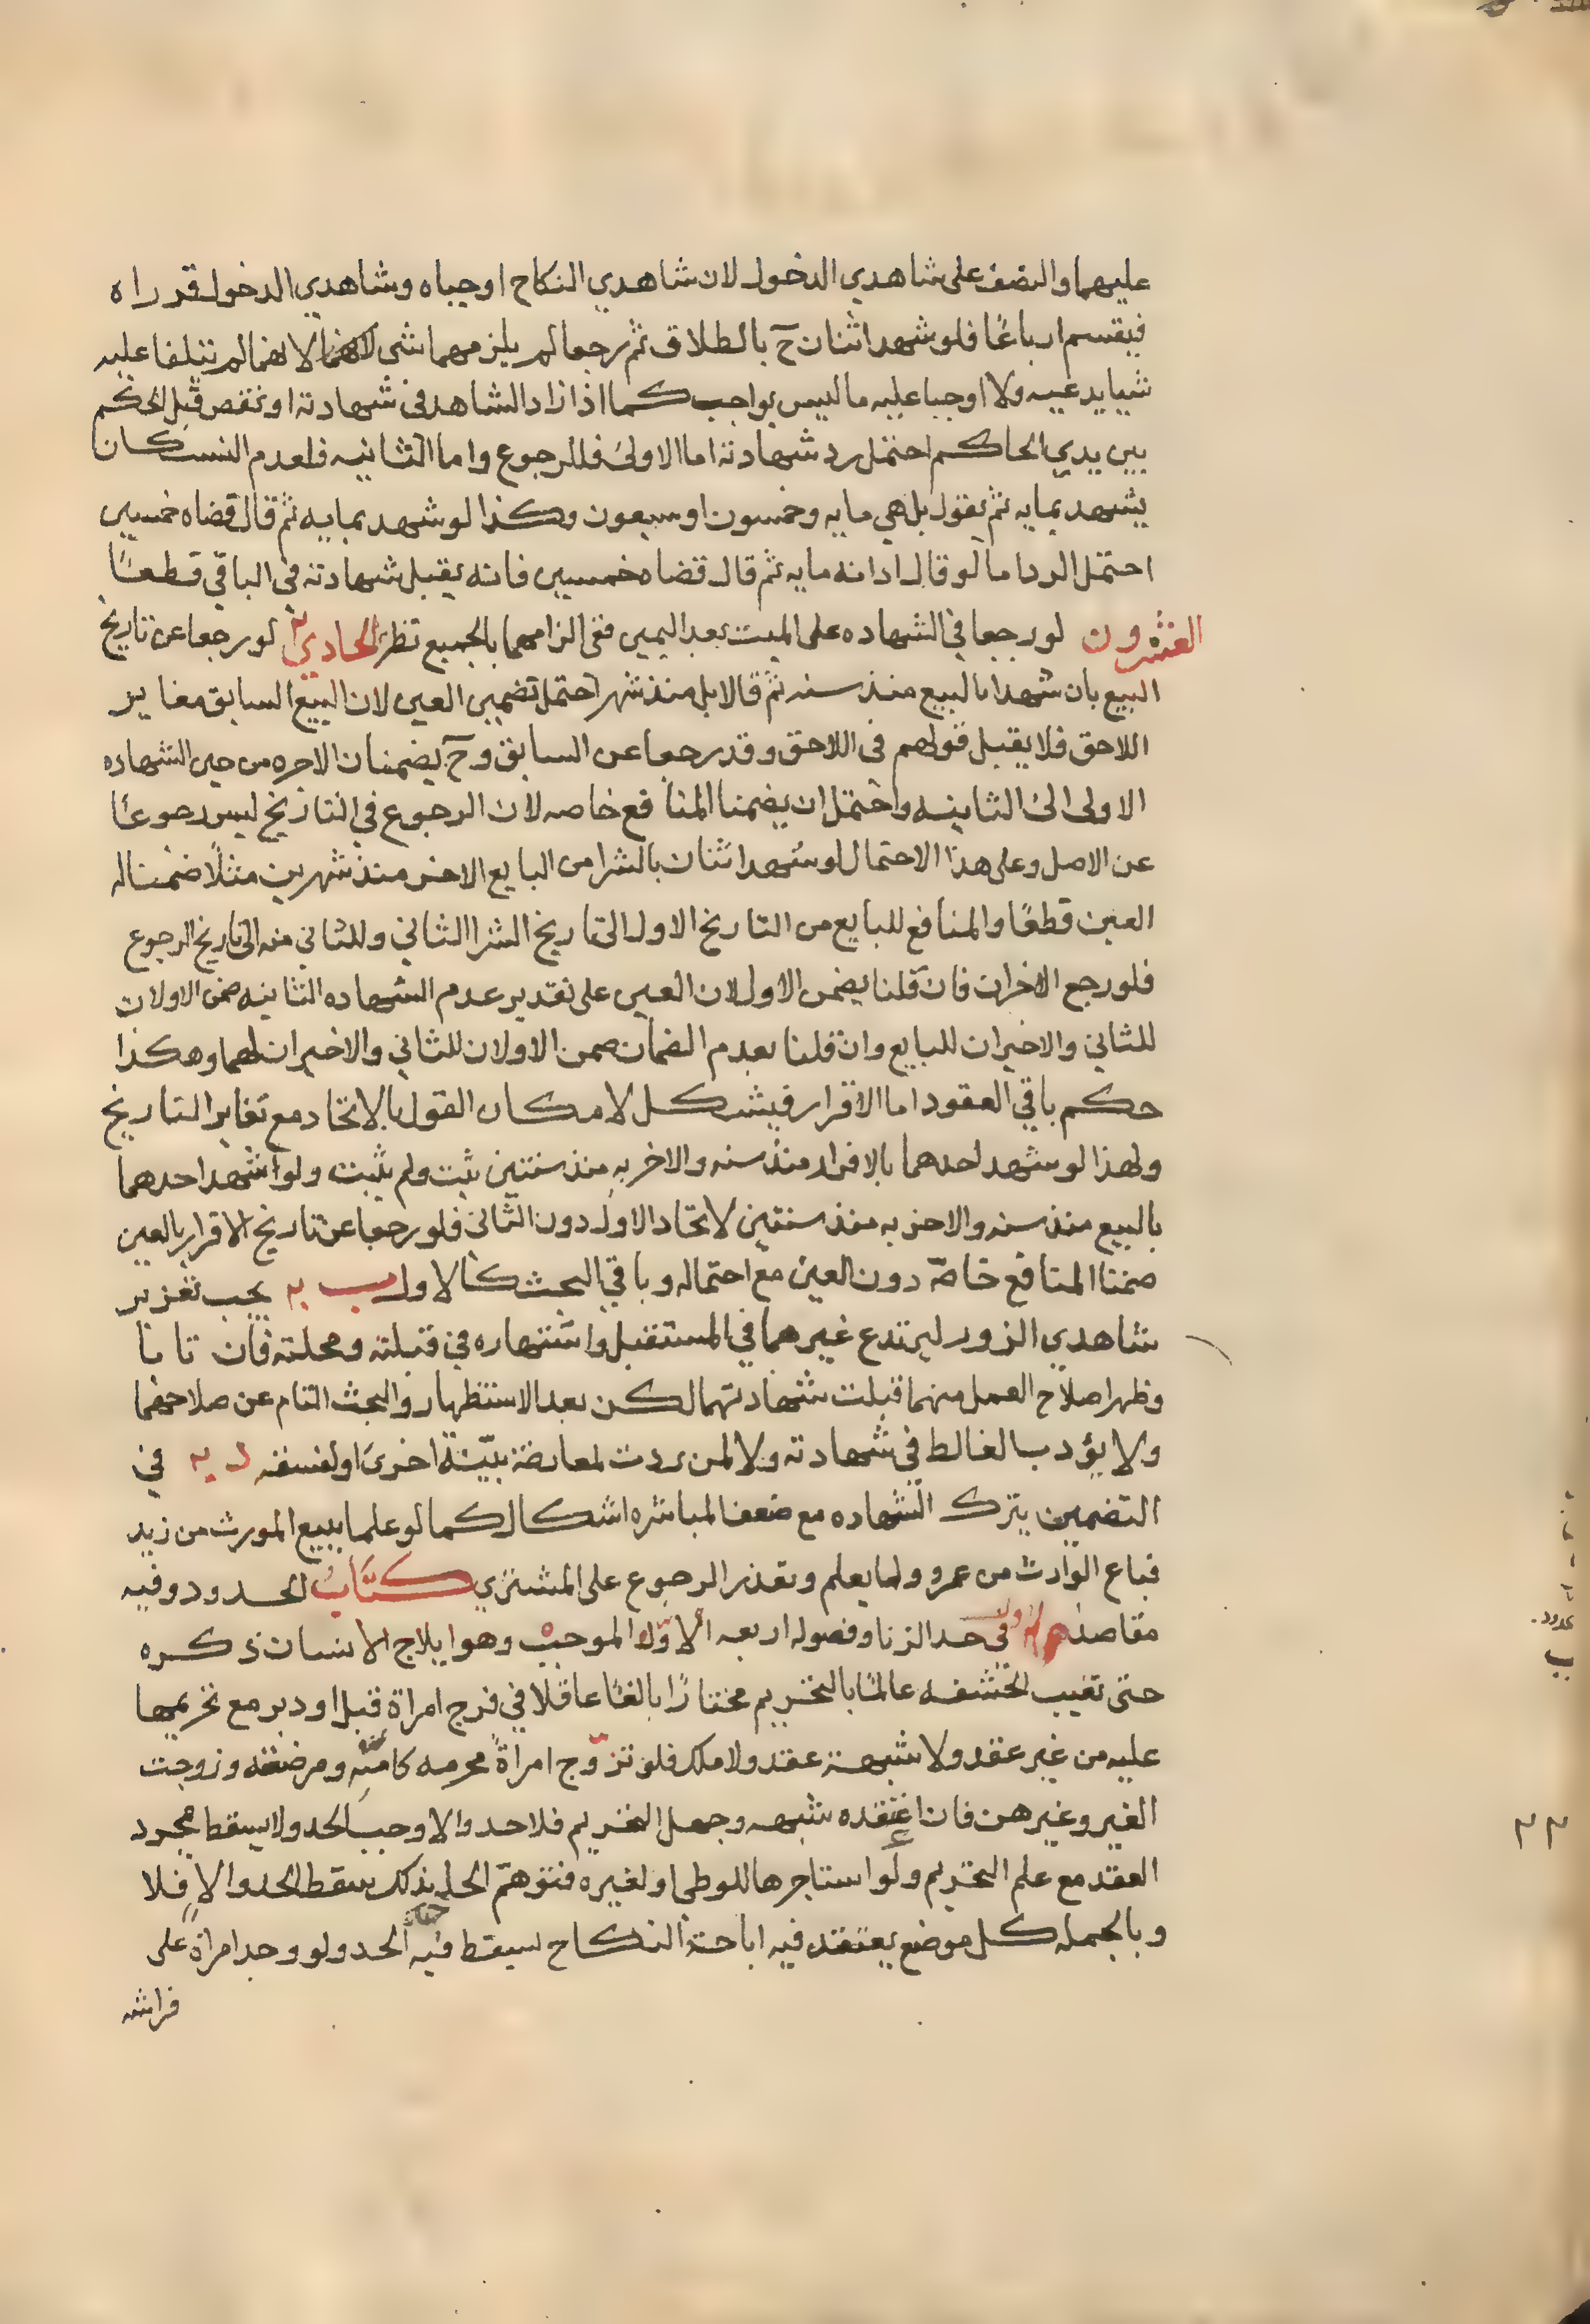 عليهما والنصف على شاهدي الدخول لان شاهدي النكاح اوجباه وشاهدي الدخول قرراه
فيقسم ارباعًا فلو شهد اثنان ح بالطلاق ثم رجعا لم يلزمهما شى لانهما لم يتلفا عليه
شيا يدعيه ولا اوجبا عليه ما ليس بواجب كما اذا زاد الشاهد في شهادته او نقص قبل الحكم
بين يدي الحاكم احتمل رد شهادته اما الاولى فللرجوع واما الثانيه فلعدم التثبت كان
يشهد بمايه ثم يقول بل هي مايه وخمسون او سبعون وكذا لو شهد بمايه ثم قال قضاه خمسين
احتمل الرد اما لو قال ادانه مايه ثم قال قضاه خمسين فانه يقبل شهادته في الباقي قطعًا
العشرون لو رجعا في الشهاده على الميت بعد اليمين ففي الزامهما بالجميع نظر الحادي لو رجعا عن تاريخ
البيع بان شهدا بالبيع منذ سنه ثم قالا بل منذ شهر احتمل تضمين العين لان البيع السابق مغاير
اللاحق فلا يقبل قولهم في اللاحق وقد رجعا عن السابق وح يضمنان الاجره من حين الشهاده
الاولى الى الثانيه واحتمل ان يضمنا المنافع خاصه لان الرجوع في التاريخ ليس رجوعًا
عن الاصل وعلى هذا الاحتمال لو شهد اثنان بالشرا من البايع الاخر منذ شهرين مثلًا ضمنا له
العين قطعًا والمنافع للبايع من التاريخ الاول الى تاريخ الشرا الثاني وللثاني منه الى تاريخ الرجوع
فلو رجع الاخران فان قلنا يضمن الاول لان العين على تقدير عدم الشهاده الثانيه ضمن الاولان
للثاني والاخيران للبايع وان قلنا بعدم الضمان ضمن الاولان للثاني والاخيران لهما وهكذا
حكم باقي العقود اما الاقرار فيشكل لامكان القول بالاتحاد مع تغاير التاريخ
ولهذا لو شهد احدهما بالاقرار منذ سنه والاخر به منذ سنتين ثبت ولم يثبت ولو شهد احدهما
بالبيع منذ سنه والاخر به منذ سنتين لاتحاد الاول دون الثاني فلو رجعا عن تاريخ الاقرار بالعين
ضمنا المنافع خاصّه دون العين مع احتماله وباقي البحث كالاول يجب تعزير
شاهدي الزور ليرتدع غيرهما في المستقبل واشتهاره في قبيلته ومحلته فان تابا
وظهر اصلاح العمل منهما قبلت شهادتهما لكن بعد الاستظهار والبحث التام عن صلاحهما
ولا يؤدب الغالط في شهادته ولا لمن ردت لمعارضة بيّنة اخرى او لفسقه في
التضمين بترك الشهاده مع ضعف المباشره اشكال كما لو علما ببيع المورث من زيد
فباع الوارث من عمرو ولما يعلم وتعذر الرجوع على المشتري كتاب الحدود وفيه
مقاصد في حد الزنا وفصوله اربعه الاوّل الموجب وهو ايلاج الانسان ذكره
حتى تغيب الحشفه عالمًا بالتحريم مختارًا بالغًا عاقلًا في فرج امراة قبل او دبر مع تحريمها
عليه من غير عقد ولا شبهة عقد ولا ملك فلو تزوّج امراةً محرمه كامّه ومرضعته وزوجت
الغير وغيرهن فان اعتقده شبهه وجهل التحريم فلا حد والا وجب الحد ولا يسقط بمجرد
العقد مع علم التحريم ولو استاجرها للوطى او لغيره فتوهّم الحل بذلك سقط الحد والا فلا
وبالجمله كل موضع يعتقد فيه اباحة النكاح يسقط فيه الحد ولو وجد امراة على
فراشه